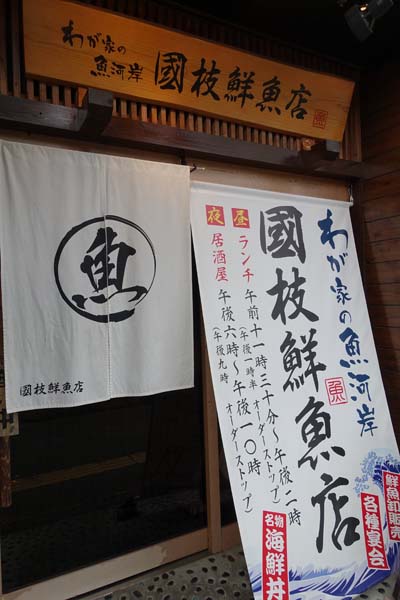 わが家の
魚河岸
國枝鮮魚店
魚
魚
國枝鮮魚店
わが家の魚河岸
魚
國枝鮮魚店
昼 ランチ 午前十一時三十分〜午後二時
(午後一時半オーダーストップ)
夜 居酒屋 午後六時〜午後一〇時
(午後九時オーダーストップ)
鮮魚卸販売
各種宴会
名物
海鮮丼
丼